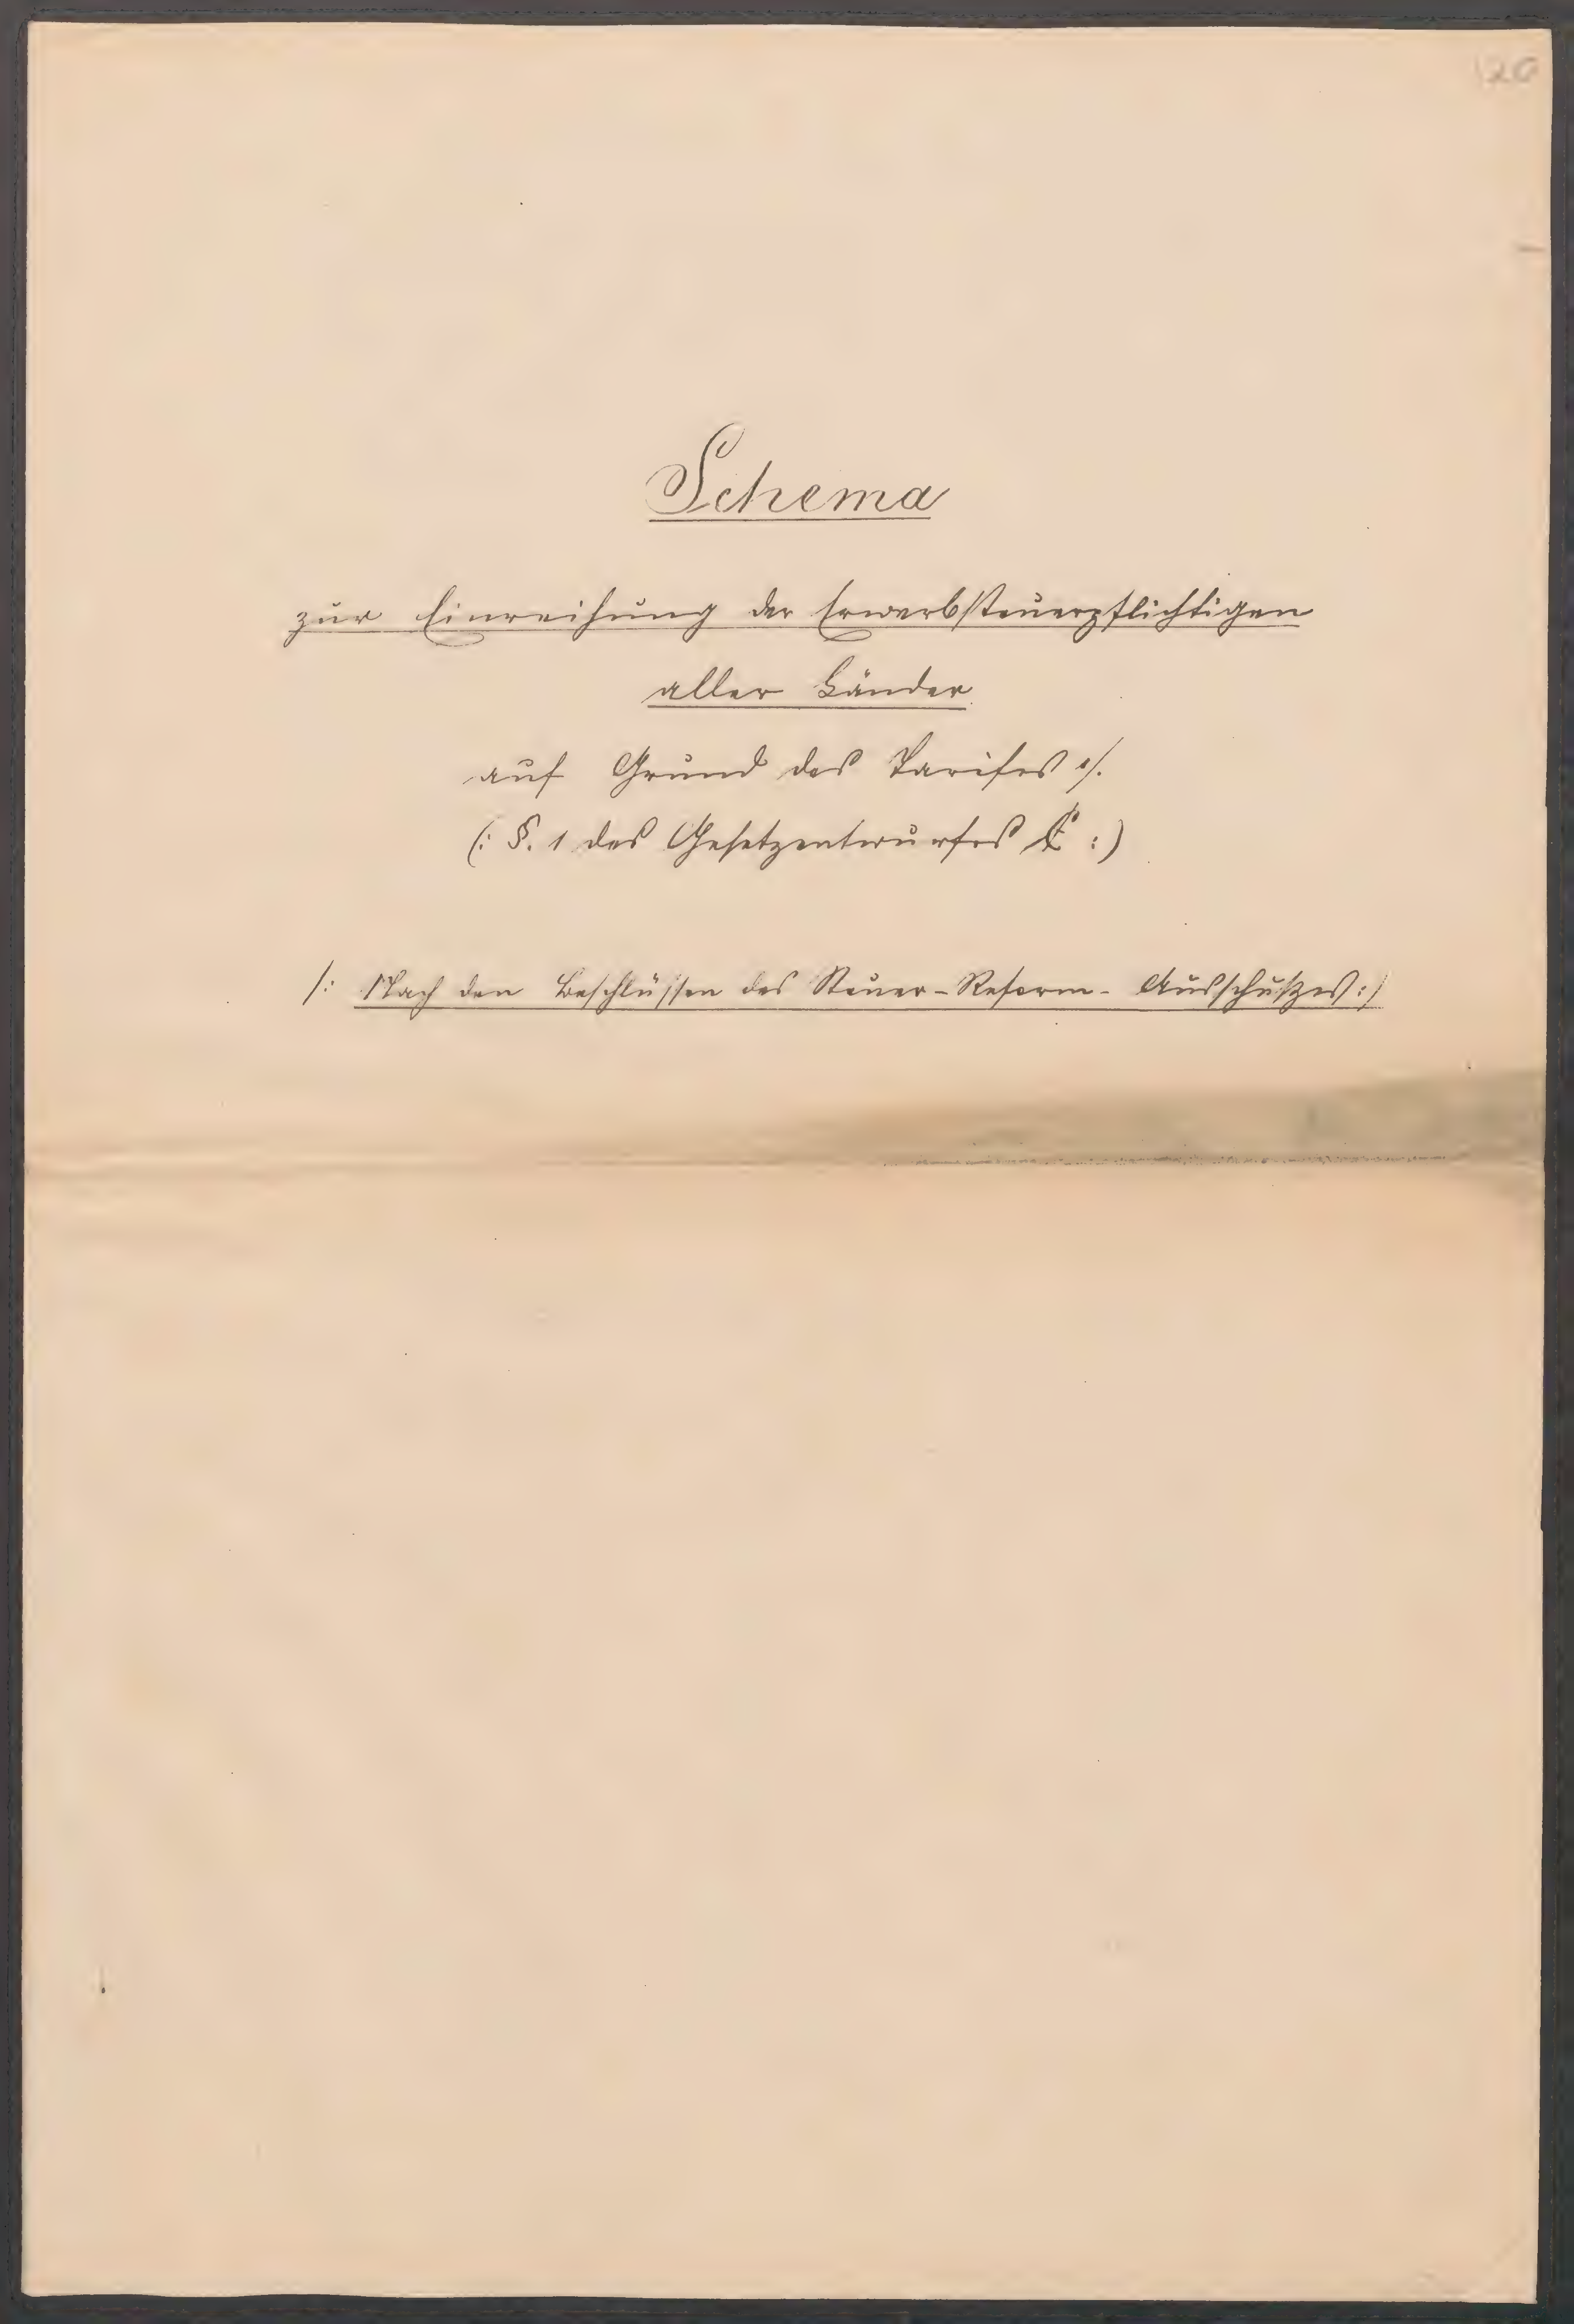 120
Schema
zur Einreihung der Erwerbsteuerpflichtigen
aller Länder
auf Grund des Tarifes
(: §. 1 des Gesetzentwurfes :)
/: Nach den Beschlüssen des Steuer-Reform-Ausschußes :/